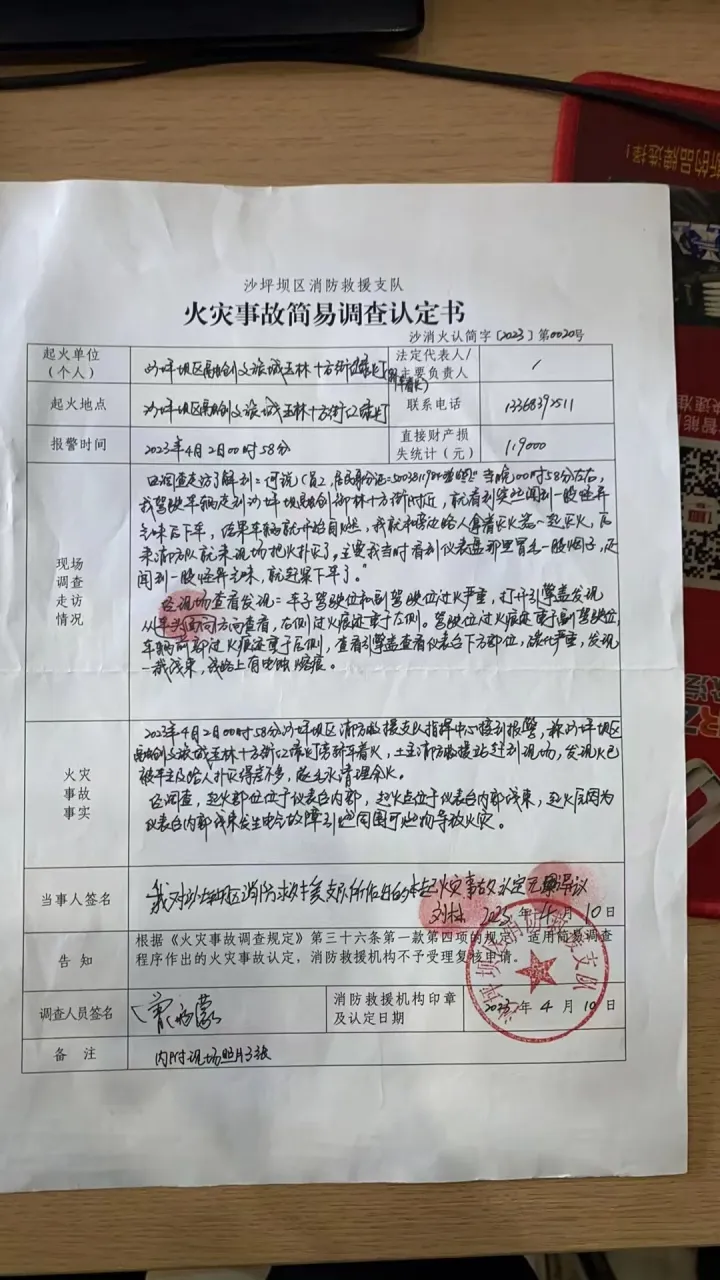 新的品牌选择！
沙坪坝区消防救援支队
火灾事故简易调查认定书
沙消火认简字〔2023〕第0020号
起火单位（个人）
沙坪坝区融创文旅城玉林十方街口绿灯
法定代表人/主要负责人
/
起火地点
沙坪坝区融创文旅城玉林十方街口绿灯
联系电话
13368392511
报警时间
2023年4月2日00时58分
直接财产损失统计（元）
119000
现场调查走访情况
经调查走访了解到：何说
当晚00时58分左右，
我驾驶车辆走到沙坪坝融创 林十方街附近，就看到突然闻到一股怪异
气味后下车，结果车辆就开始自燃，我就和旁边路人拿着灭火器一起灭火，后
来消防队就来现场把火扑灭了。主要我当时看到仪表盘那里冒毛一股烟子，还
闻到一股怪异气味，就赶紧下车了。”
经现场查看发现：车子驾驶位和副驾驶位过火严重，打开引擎盖发现
从车头面向方向查看，右侧过火痕迹重于左侧。驾驶位过火痕迹重于副驾驶位，
车辆前部过火痕迹重于后侧，查看引擎盖查看仪表台下方部位，碳化严重，发现
一截线束，线路上有电蚀熔痕。
火灾事故事实
2023年4月2日00时58分沙坪坝区消防救援支队指挥中心接到报警，称沙坪坝区
融创文旅城玉林十方街口绿灯 轿车着火，土主消防救援站赶到现场，发现火已
被车主及路人扑灭得差不多，随毛水清理余火。
经调查，起火部位位于仪表台内部，起火点位于仪表台内部线束，起火原因为
仪表台内部线束发生电气故障引燃周围可燃物导致火灾。
当事人签名
我对沙坪坝区消防救援支队所作出的本起火灾事故认定无异议
2023年4月10日
告知
根据《火灾事故调查规定》第三十六条第一款第四项的规定，适用简易调查
程序作出的火灾事故认定，消防救援机构不予受理复核申请。
调查人员签名
消防救援机构印章及认定日期
2023年4月10日
备注
内附现场照片3张